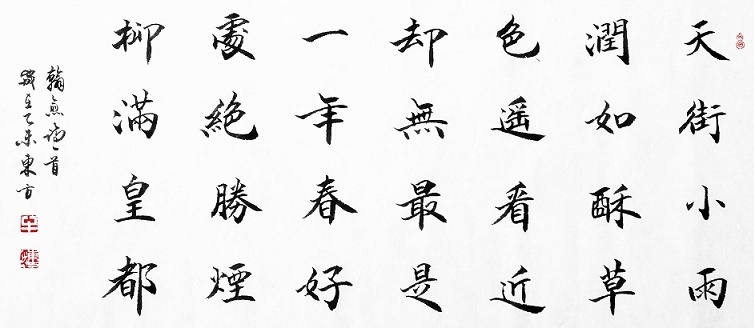 天街小雨
潤如酥草
色遥看近
却無最是
一年春好
處絶勝煙
柳滿皇都
韓愈詩一首
歲在乙未東方